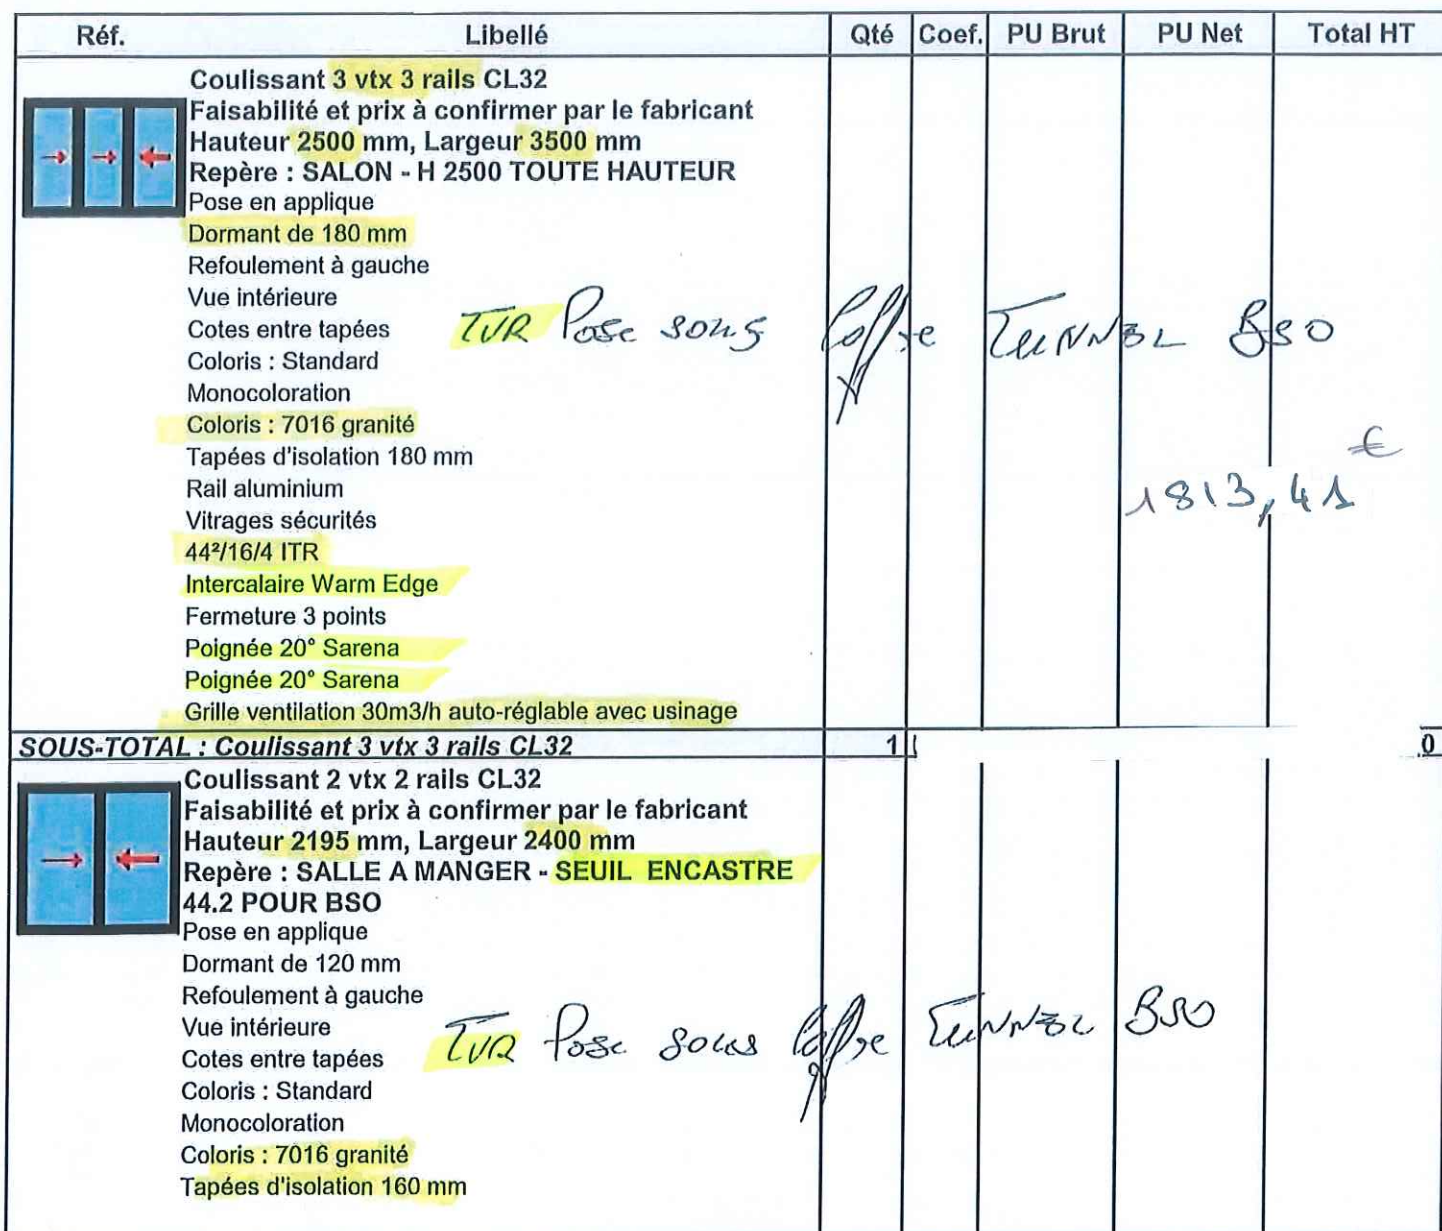 Réf. Libellé Qté Coef. PU Brut PU Net Total HT
Coulissant 3 vtx 3 rails CL32
Faisabilité et prix à confirmer par le fabricant
Hauteur 2500 mm, Largeur 3500 mm
Repère : SALON - H 2500 TOUTE HAUTEUR
Pose en applique
Dormant de 180 mm
Refoulement à gauche
Vue intérieure
Cotes entre tapées
TVR Pose sous Coffre TUNNEL BSO
Coloris : Standard
Monocoloration
Coloris : 7016 granité
Tapées d'isolation 180 mm
Rail aluminium
1813,41 €
Vitrages sécurités
44²/16/4 ITR
Intercalaire Warm Edge
Fermeture 3 points
Poignée 20° Sarena
Poignée 20° Sarena
Grille ventilation 30m3/h auto-réglable avec usinage
SOUS-TOTAL : Coulissant 3 vtx 3 rails CL32 1 0
Coulissant 2 vtx 2 rails CL32
Faisabilité et prix à confirmer par le fabricant
Hauteur 2195 mm, Largeur 2400 mm
Repère : SALLE A MANGER - SEUIL ENCASTRE
44.2 POUR BSO
Pose en applique
Dormant de 120 mm
Refoulement à gauche
Vue intérieure
TVR Pose sous Coffre TUNNEL BSO
Cotes entre tapées
Coloris : Standard
Monocoloration
Coloris : 7016 granité
Tapées d'isolation 160 mm